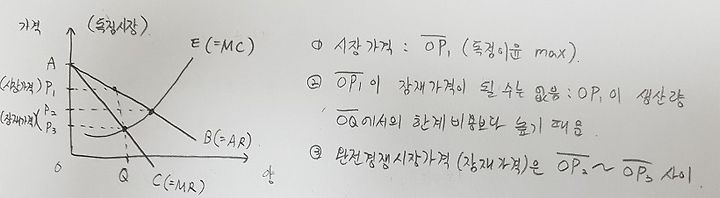 가격 (독점시장)
E(=MC)
A
(시장가격) P₁
P₂
(잠재가격) P₃
B(=AR)
0 Q 양
C(=MR)
① 시장가격 : OP₁ (독점이윤 max).
② OP₁이 잠재가격이 될 수는 없음 : OP₁이 생산량
OQ에서의 한계비용보다 높기 때문.
③ 완전경쟁시장가격(잠재가격)은 OP₂ ~ OP₃ 사이.